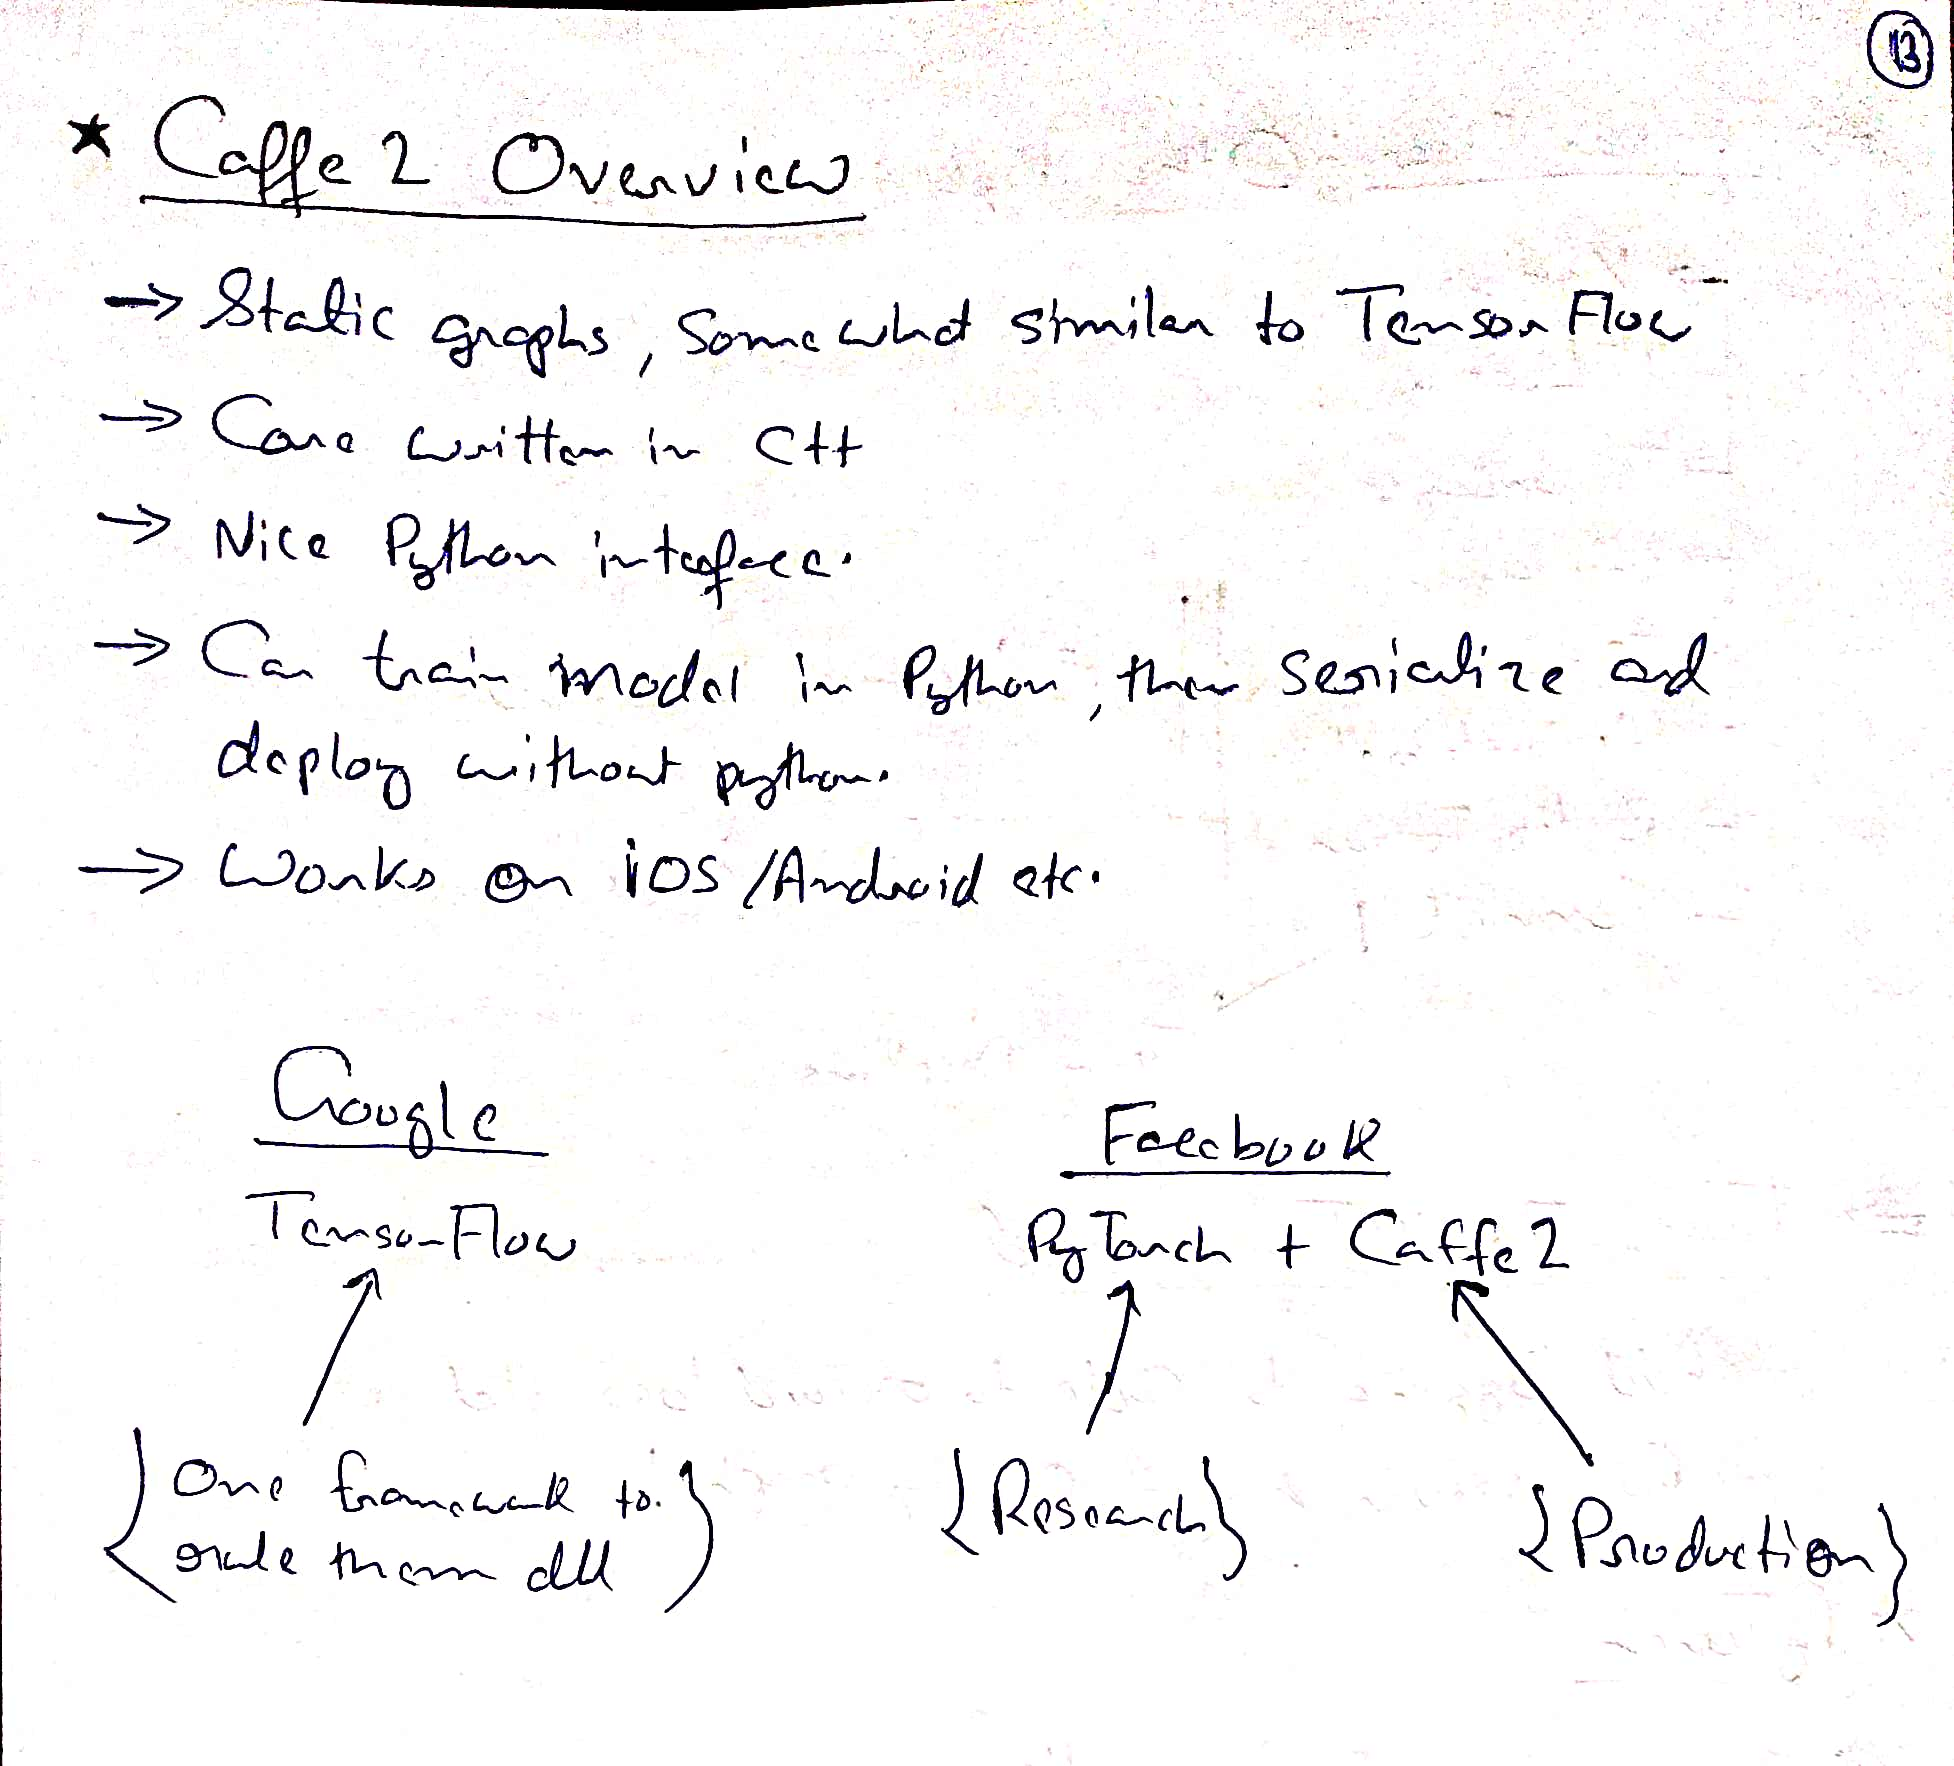 13
* Caffe 2 Overview
→ Static graphs, Somewhat similar to TensorFlow
→ Core written in C++
→ Nice Python interface.
→ Can train model in Python, then serialize and
deploy without python.
→ Works on iOS /Android etc.
Google
TensorFlow
Facebook
PyTorch + Caffe2
{One framework to
rule them all}
{Research}
{Production}